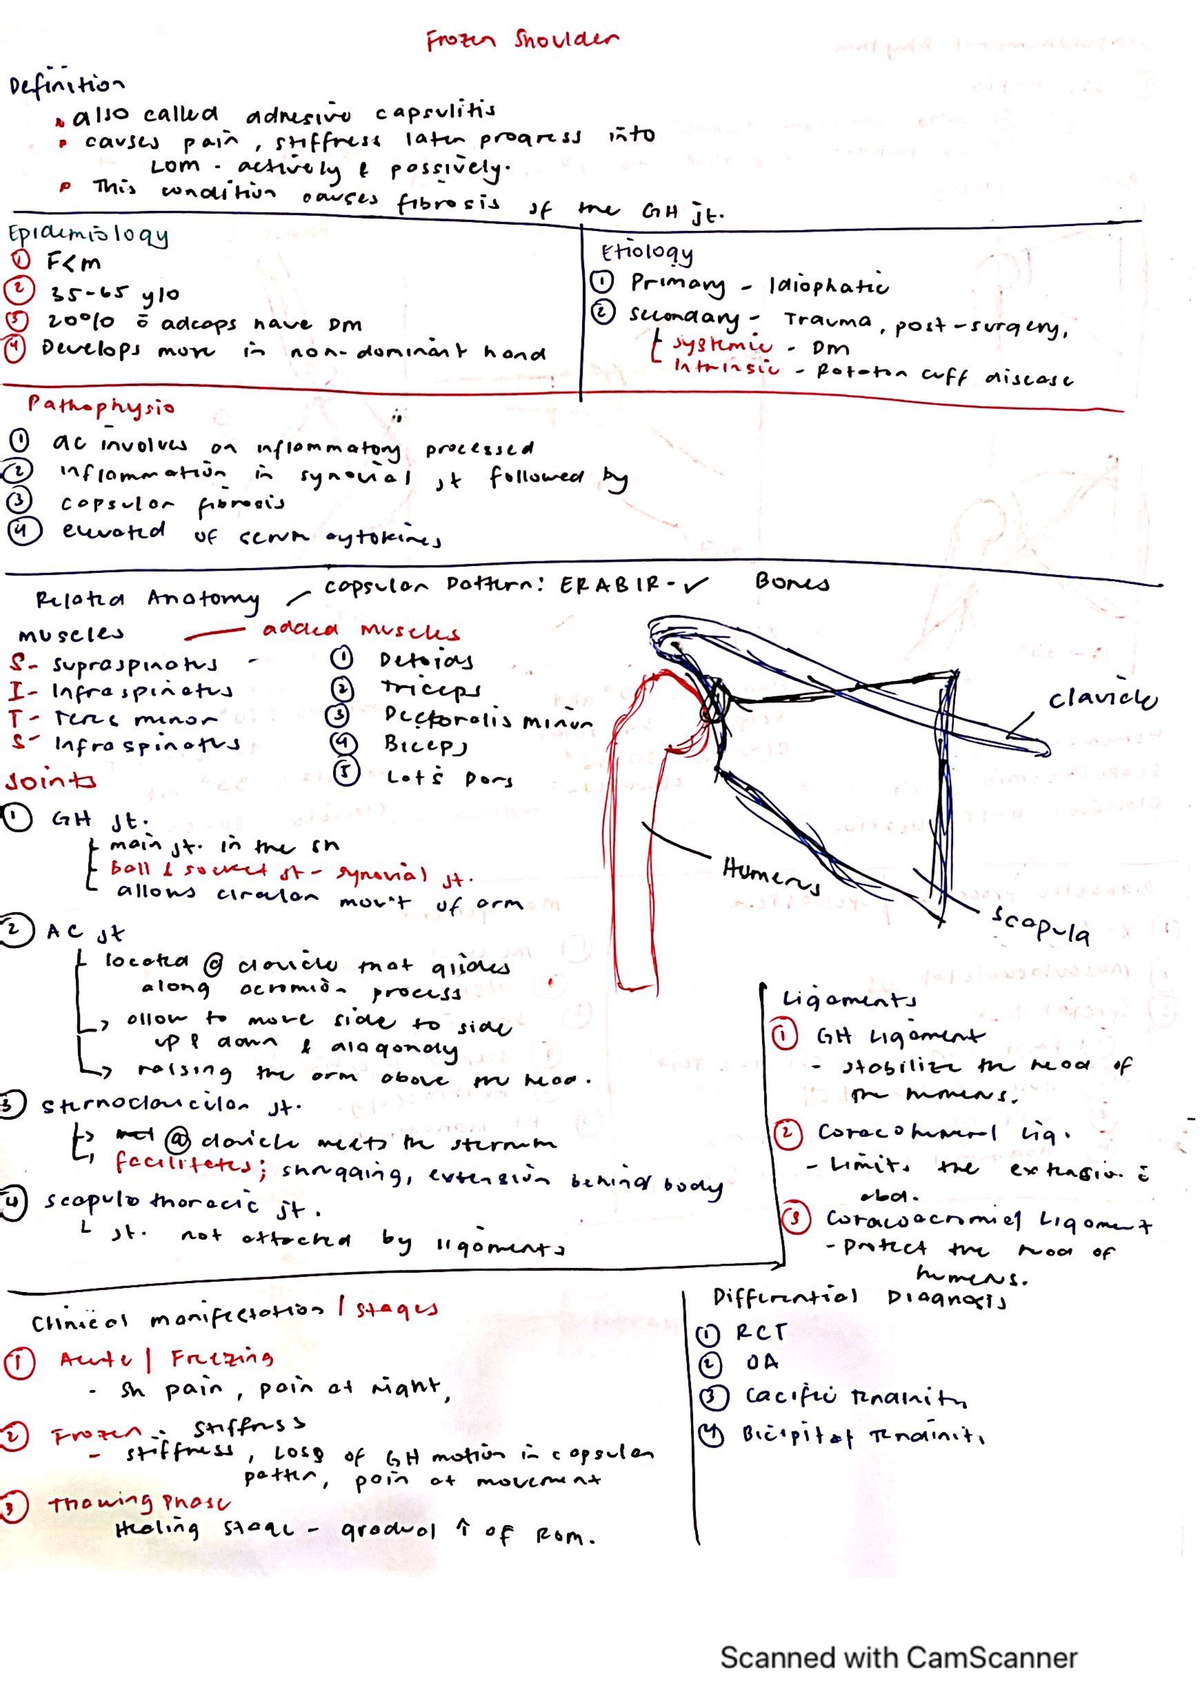 Frozen Shoulder
Definition
also called adhesive capsulitis
causes pain, stiffness later progress into
LOM - actively & passively.
This condition causes fibrosis of the GH jt.
Epidemiology
① F<m
② 35-65 y/o
③ 20% c̄ adcaps have DM
④ Develops more in non-dominant hand
Etiology
① Primary - Idiophatic
② Secondary - Trauma, post-surgery,
systemic - DM
Intrinsic - Rotator cuff disease
Pathophysio
① ac involves an inflammatory processed
② inflammation in synovial jt followed by
③ capsular fibrosis
④ elevated of serum cytokines
Related Anatomy - capsular Pattern: ERABIR - ✓
Bones
muscles - added muscles
S- supraspinatus
I- Infraspinatus
T- Teres minor
S- Infraspinatus
① Detoids
② Triceps
③ Pectoralis minor
④ Biceps
⑤ Lats Dors
clavicle
Humerus
scapula
Joints
① GH jt.
main jt. in the sh
ball & socket jt - synovial jt.
allows circular mov't of arm
② AC jt
located @ clavicle that glides
along acromion process
allow to move side to side
up & down & diagonaly
raising the arm above the head.
③ Sternoclavicular jt.
@ clavicle meets the sternum
facilitates; shrugging, extension behind body
④ scapulo thoracic jt.
jt. not attached by ligaments
Ligaments
① GH Ligament
- stabilize the head of
the humerus.
② Coracohumeral Lig.
- Limits the extension c̄
abd.
③ Coracoacromial Ligament
- Protect the head of
humerus.
Clinical manifestation / stages
① Acute / Freezing
- Sh pain, pain at night,
② Frozen - stiffness
- stiffness, Loss of GH motion in capsular
patter, pain at movement
③ Thawing Phase
Healing stage - gradual ↑ of ROM.
Differential Diagnosis
① RCT
② OA
③ Cacific Tendinitis
④ Bicipital Tendinitis
Scanned with CamScanner